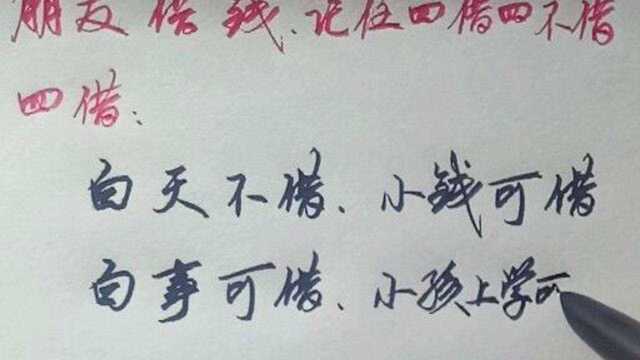 朋友借钱、记住四借四不借
四借：
白天不借、小钱可借
白事可借、小孩上学可